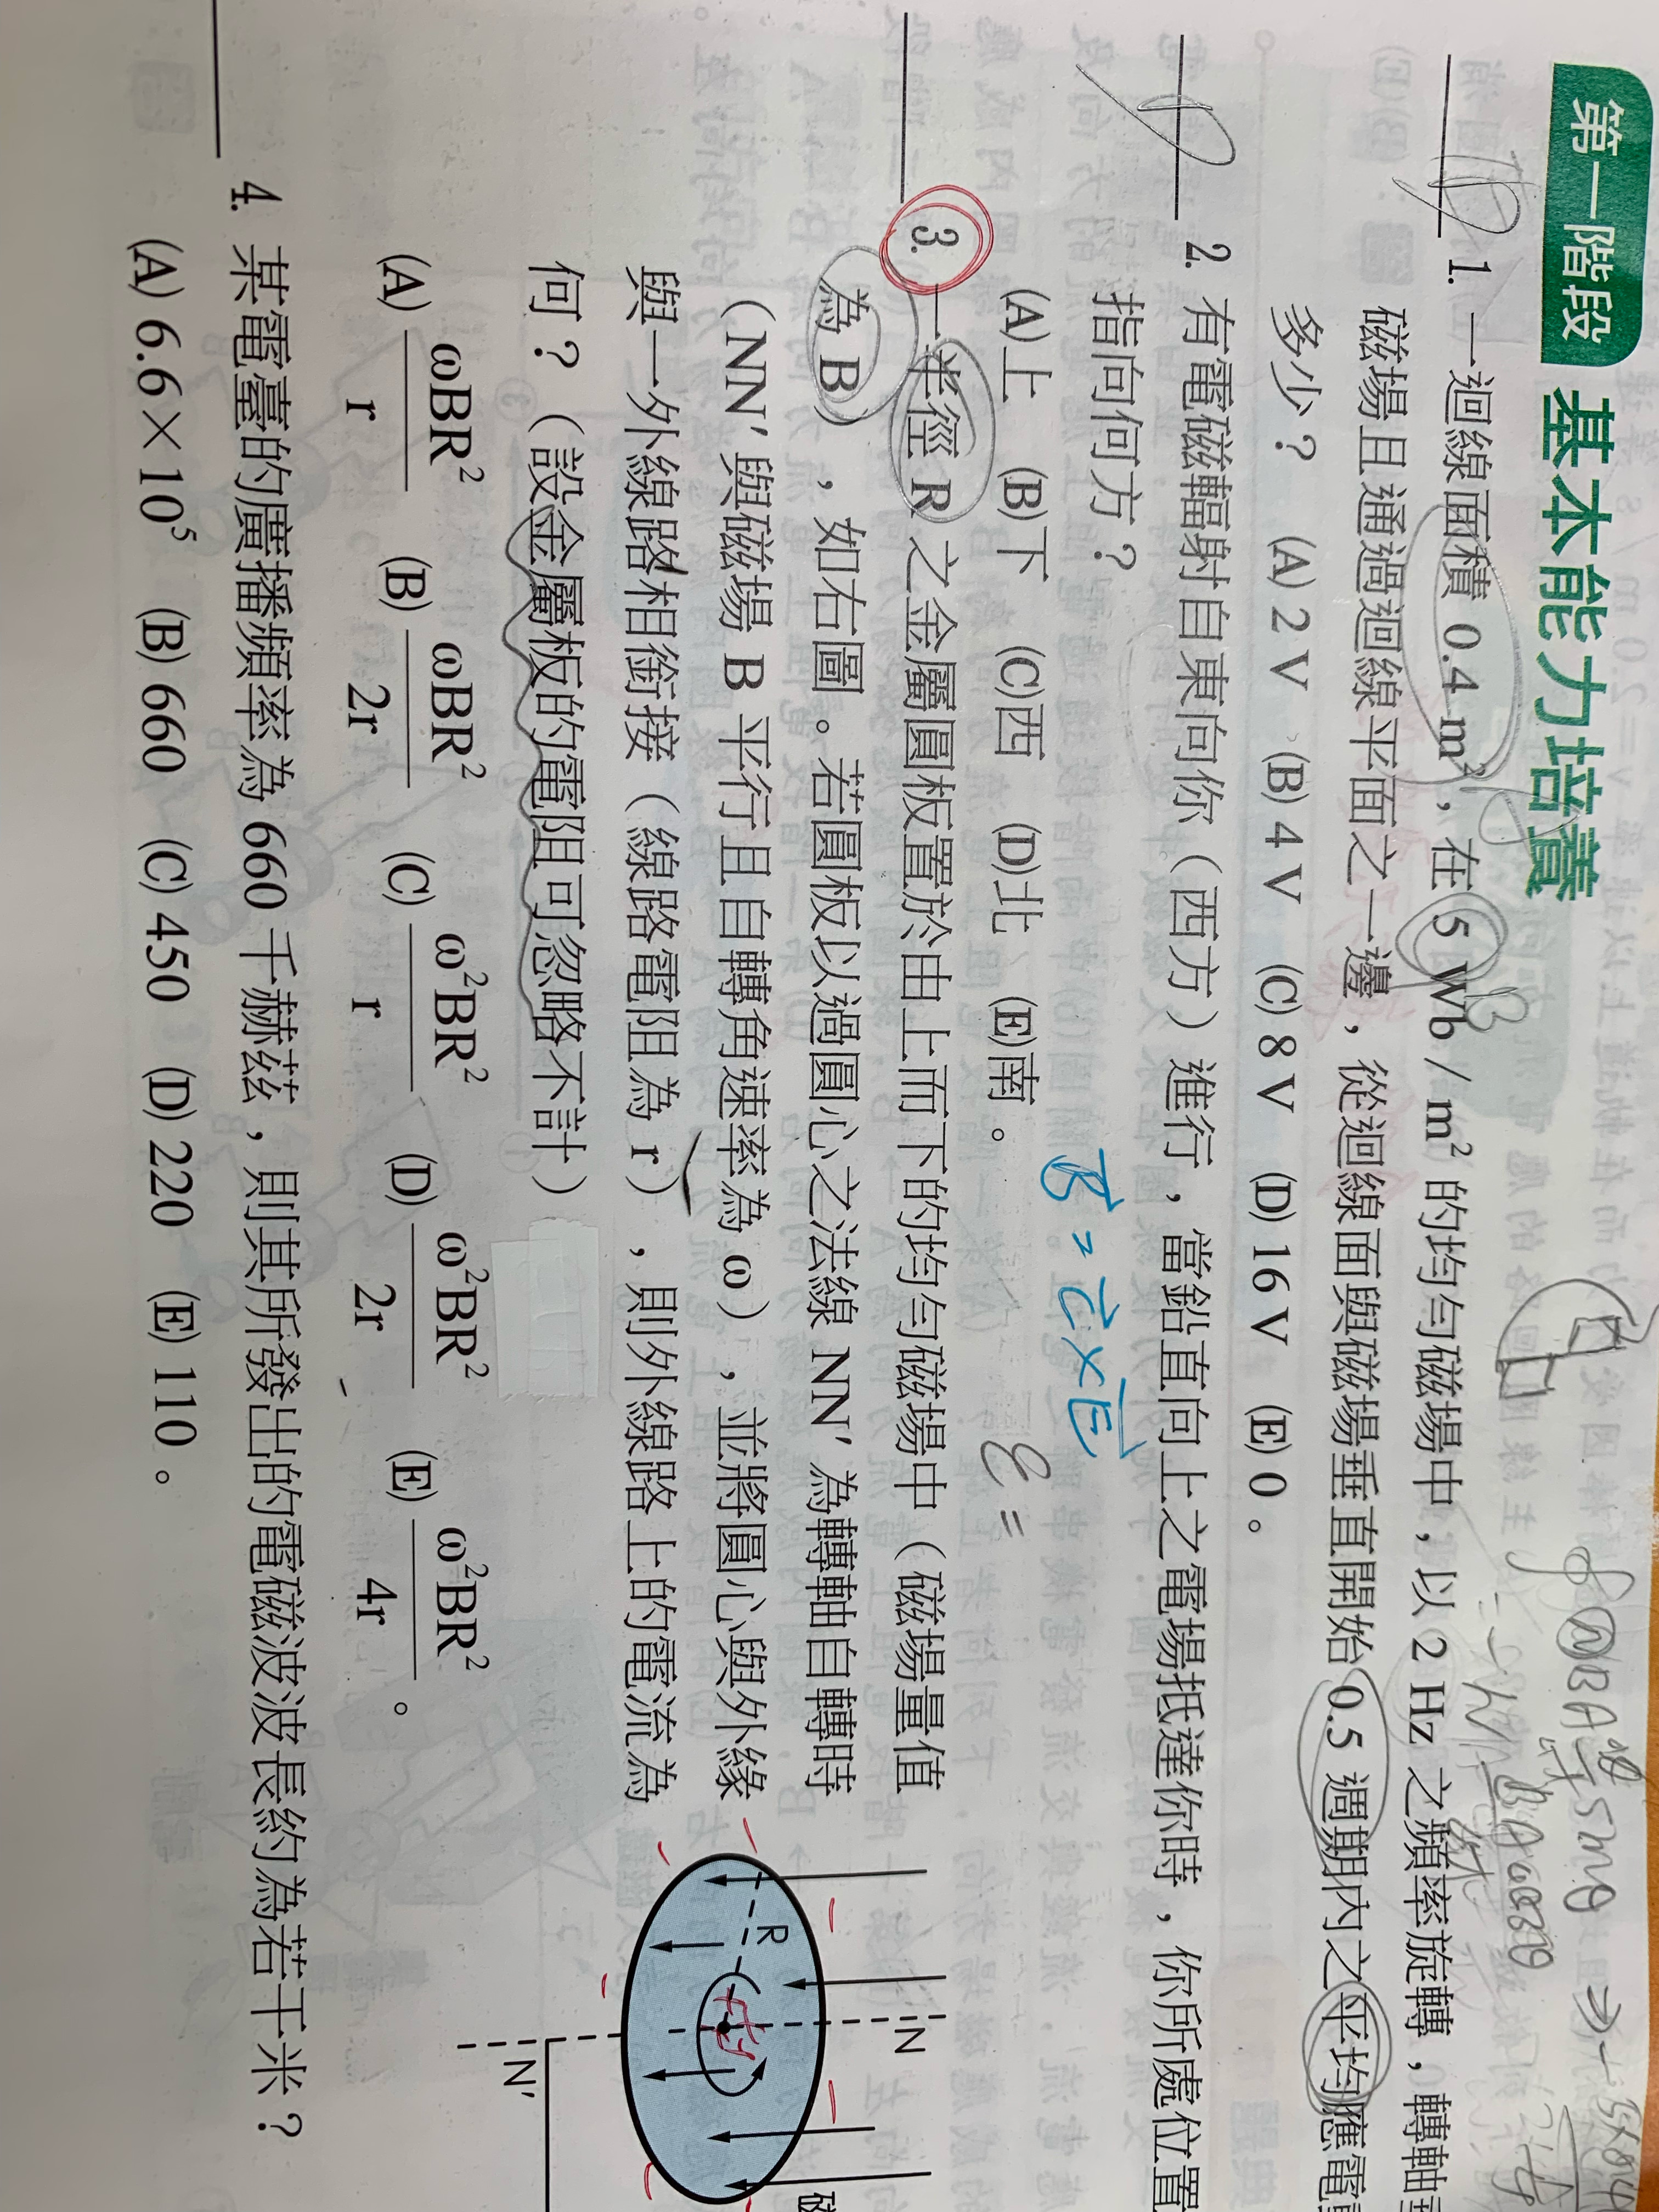 第一階段 基本能力培養
1. 一迴線面積 0.4 m²，在 5 Wb / m² 的均勻磁場中，以 2 Hz 之頻率旋轉，轉軸
磁場且通過迴線平面之一邊，從迴線面與磁場垂直開始 0.5 週期內之平均應電
多少？ (A) 2 V (B) 4 V (C) 8 V (D) 16 V (E) 0 。
2. 有電磁輻射自東向你（西方）進行，當鉛直向上之電場抵達你時，你所處位置
指向何方？
(A)上 (B)下 (C)西 (D)北 (E)南 。
B = C × E
ε =
3. 一半徑 R 之金屬圓板置於由上而下的均勻磁場中（磁場量值
為 B），如右圖。若圓板以過圓心之法線 NN′ 為轉軸自轉時
（NN′ 與磁場 B 平行且自轉角速率為 ω），並將圓心與外緣
與一外線路相銜接（線路電阻為 r），則外線路上的電流為
何？（設金屬板的電阻可忽略不計）
(A) ωBR²/r (B) ωBR²/2r (C) ω²BR²/r (D) ω²BR²/2r (E) ω²BR²/4r 。
N
R
N′
4. 某電臺的廣播頻率為 660 千赫茲，則其所發出的電磁波波長約為若干米？
(A) 6.6×10⁵ (B) 660 (C) 450 (D) 220 (E) 110 。